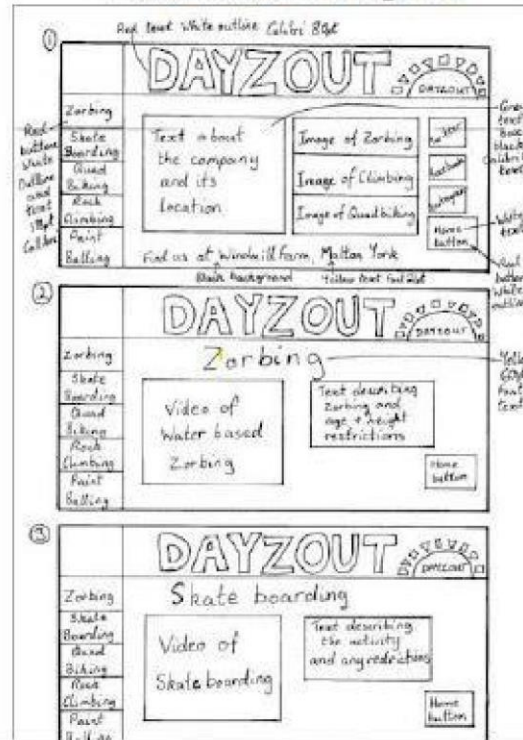 Red text White outline Calibri 80pt
①
DAYZOUT
DAYZOUT
Zorbing
Skate
Boarding
Quad
Biking
Rock
Climbing
Paint
Balling
Red
buttons
White
Outline
and
text
18pt
Calibri
Text about
the company
and its
location
Image of Zorbing
Image of Climbing
Image of Quadbiking
Home
button
text
Box
black
Calibri
text
White
text
Red
button
White
outline
Find us at Windmill Farm, Malton York
Black background
Yellow text
②
DAYZOUT
DAYZOUT
Zorbing
Zorbing
Skate
Boarding
Quad
Biking
Rock
Climbing
Paint
Balling
Video of
Water based
Zorbing
Text describing
Zorbing and
age + height
restrictions
Home
button
Font
text
③
DAYZOUT
DAYZOUT
Skate boarding
Zorbing
Skate
Boarding
Quad
Biking
Rock
Climbing
Paint
Balling
Video of
Skate boarding
Text describing
the activity
and any restrictions
Home
button